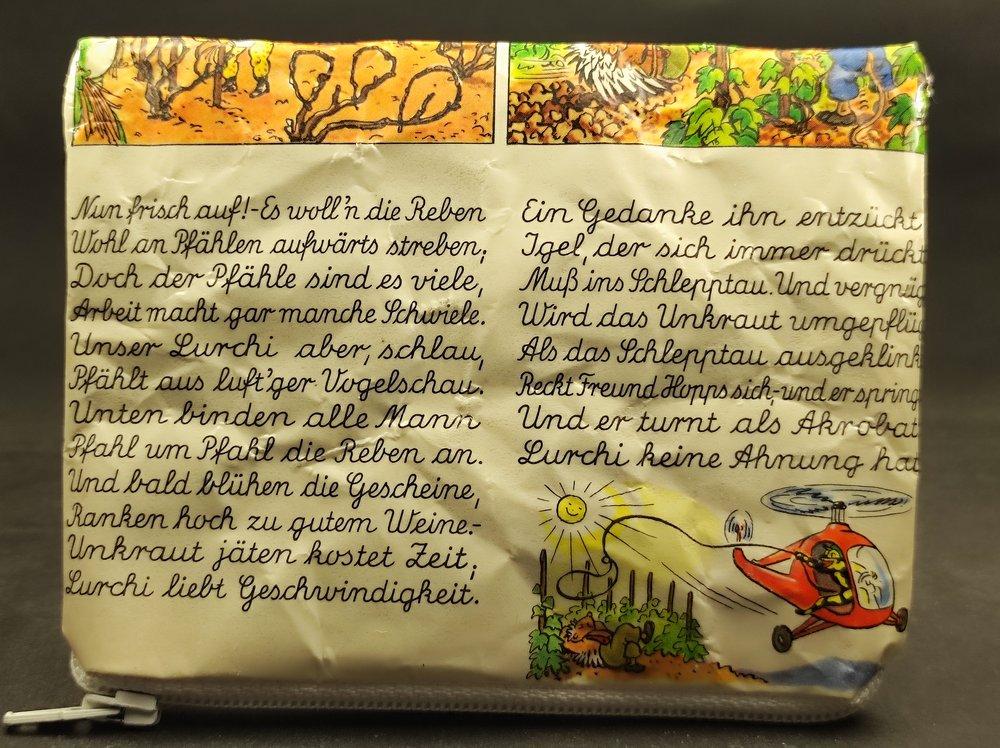 Nun frisch auf!-Es woll'n die Reben
Wohl an Pfählen aufwärts streben;
Doch der Pfähle sind es viele,
Arbeit macht gar manche Schwiele.
Unser Lurchi aber, schlau,
Pfählt aus luft'ger Vogelschau.
Unten binden alle Mann
Pfahl um Pfahl die Reben an.
Und bald blühen die Gescheine,
Ranken hoch zu gutem Weine.-
Unkraut jäten kostet Zeit;
Lurchi liebt Geschwindigkeit.
Ein Gedanke ihn entzückt
Igel, der sich immer drückt
Muß ins Schlepptau. Und vergnüg
Wird das Unkraut umgepflüg
Als das Schlepptau ausgeklink
Reckt Freund Hopps sich,-und er spring
Und er turnt als Akrobat
Lurchi keine Ahnung hat